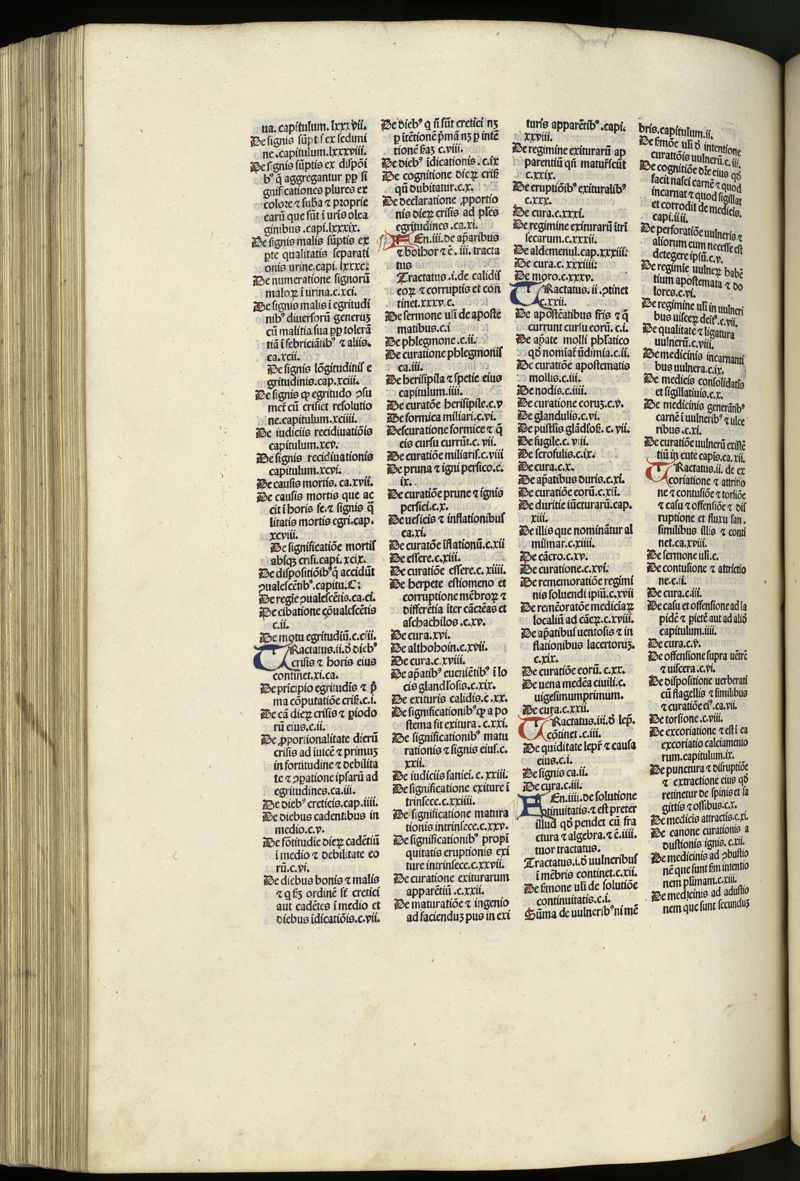 ua. capitulum. lxxxvii.
De signis sūpt̄ ex sedimi
ne .capitulum.lxxxviii.
De signis sūptis ex dispōi
bꝰ q̄ aggregantur ꝓp si
gnificationes plures ex
colore ⁊ suba ⁊ proprie
earū que sūt ī uris olea
ginibus .capi.lxxxix.
De signis malis sūptis ex
pte qualitatis separati
onis urine.capi. lxxxx.
De numeratione signorū
malorꝝ ī urina.c.xci.
De signis malis ī egritudi
nibꝰ diuersorū generuȝ
cū malitia sua pp tolerā
tiā ī febriciātibꝰ ⁊ aliis.
ca.xcii.
De signis lōgitudinis e
gritudinis.cap.xciii.
De signis ꝙ egritudo ꝯsu
met̄ cū crisiet resolutio
ne.capitulum.xciiii.
De iudiciis recidiuatiōis
capitulum.xcv.
De signis recidiuationis
capitulum.xcvi.
De causis mortis. ca.xvii.
De causis mortis que ac
cit ī horis se.⁊ signis q̄
litatis mortis egri.cap.
xcviii.
De significatiōe mortis
absqꝫ crisi.capi. xcix.
De dispositiōibꝰ q̄ accidūt
ꝯualescētibꝰ.capitu.C.
De regīe ꝯualescētis.ca.ci.
De cibatione ꝯualescētis
c.ii.
De motu egritudiū.c.ciii.
Tractatus.ii.ō diebꝰ
crisis ⁊ horis eius
continet.xi.ca.
De pricipio egritudīs ⁊ p̄
ma cōputatiōe cris̄.c.i.
De cā dierꝝ crisis ⁊ ꝑiodo
rū eius.c.ii.
De ꝓportionalitate dierū
crisis ad iuicē ⁊ primuȝ
in fortitudine ⁊ debilita
te ⁊ ꝯpatione ipsarū ad
egritudines.ca.iii.
De diebꝰ creticis.cap.iiii.
De diebus cadentibus in
medio.c.v.
De fōtitudie dierꝝ cadētiū
ī medio ⁊ debilitate eo
rū.c.vi.
De diebus bonis ⁊ malis
⁊ q̄ ƺm ordinē st̄ cretici
aut cadētes ī medio et
diebus īdicatiōis.c.vii.
De diebꝰ q̄ ñ sūt cretici nȝ
ꝑ ītētionē p̄mā nȝ ꝑ intē
tionē ſcdaȝ c.viii.
De diebꝰ īdicationis .c.ix
De cognitione dierꝝ cris̄
qn̄ dubitatur.c.x.
De declaratione ꝓportio
nis dierꝝ crisis ad p̄les
egritudines .ca.xi.
Fen.iii.de ap̄aribus
⁊ bothor ⁊ c̄. iii. tracta
tus
Tractatus .i.de calidis
eorꝝ ⁊ corruptis et con
tinet.xxxv.c.
De sermone uli de aposte
matibus.c.i
De phlegmone .c.ii.
De curatione phlegmonis
ca.iii.
De herisipila ⁊ spetie eius
capitulum.iiii.
De curatōe herisipile.c.v
De formica miliari.c.vi.
De curatione formice ⁊ q̄
eis cursu currūt.c. vii.
De curatiōe miliaris.c.viii
De pruna ⁊ igni persico.c.
ix.
De curatiōe prune ⁊ ignis
persici.c.x.
De uesicis ⁊ inflationibus
ca.xi.
De curatōe īflationū.c.xii
De essere.c.xiii.
De curatiōe essere.c. xiiii.
De herpete estiomeno et
corruptione mēbrorꝝ ⁊
differētia īter cācreas et
aschachilos .c.xv.
De cura.xvi.
De althohoin.c.xvii.
De cura.c.xviii.
De ap̄atibꝰ eueniētibꝰ ī lo
cis glandlosis.c.xix.
De exituris calidis .c .xx.
De significationibꝰ ꝙ apo
stema sit exitura .c.xxi.
De significationibꝰ matu
rationis ⁊ signis eius.c.
xxii.
De iudiciis saniei. c. xxiii.
De significatione exiture ī
trinsece.c.xxiiii.
De significatione matura
tionis intrinsece.c.xxv.
De significationibꝰ propī
quitatis eruptionis exi
ture intrinsece.c.xxvii.
De curatione exiturarum
apparētiū .c.xxii.
De maturatiōe ⁊ ingenio
ad faciendum pus in exi
turis apparētibꝰ .capi.
xxviii.
De regimine exiturarū ap
parentiū qn̄ maturescūt
c.xxix.
De eruptiōibꝰ exituralibꝰ
c.xxx.
De cura.c.xxxi.
De regimine exiturarū itri
secarum.c.xxxii.
De aldemenul.cap.xxxiii:
De cura.c. xxxiiii:
De moro.c.xxxv.
Tractatus. ii .ꝯtinet
c.xxii.
De apostēatibus fris ⁊ q̄
currunt cursu eorū. c.i.
De ap̄ate molli phlatico
qd̄ nomīat̄ ūdimia.c.ii.
De curatiōe apostematis
mollis.c.iii.
De nodis.c.iiii.
De curatione eoruȝ.c.v.
De glandulis.c.vi.
De pustlis glādlos̄. c. vii.
De fugile.c. viii.
De scrofulis.c.ix.
De cura.c.x.
De ap̄atibus duris.c.xi.
De curatiōe eorū.c.xii.
De duritie iūcturarū.cap.
xiii.
De illis que nominātur al
mismar.c.xiiii.
De cācro.c.xv.
De curatione.c.xvi.
De rememoratiōe regimi
nis soluendi ipiū.c.xvii
De remēoratōe mediciarꝝ
localiū ad cācrꝝ.c.xviii.
De ap̄atibus uentosis ⁊ in
flationibus lacertoruȝ.
c.xix.
De curatiōe eorū. c.xx.
De uena medēa ciuili.c.
uigesimumprimum.
De cura.c.xxii.
Tractatus.iii.ō lep̄.
cōtinet .c.iii.
De quiditate lepr̄ ⁊ causa
eius.c.i.
De signis ca.ii.
De cura.c.iii.
Fen.iiii.de solutione
ꝯtinuitatis.⁊ est preter
illud qd̄ pendet cū fra
ctura ⁊ algebra.⁊ c̄.iiii.
tuor tractatus.
Tractatus.i.ō uulneribus
ī mēbris continet.c.xii.
De s̄mone uli de solutiōe
continuitatis.c.i.
Sūma de uulneribꝰ ni mē
bris.capitulum.ii.
De s̄mōe uli ō intentione
curatiōis uulnerū.c. iii.
De cognitiōe dr̄e eius qd̄
facit nasci carnē ⁊ quod
incarnat ⁊ quod sigillat
et corrodit de medicis.
capi.iiii.
De perforatiōe uulneris ⁊
aliorum cum necesse est
detegere ipsū.c.v.
De regimīe uulnerꝝ habē
tium apostemata ⁊ do
lores.c.vi.
De regimine uli in uulneri
bus uiscerꝝ deiſ.c.vii.
De qualitate ⁊ ligatura
uulnerū.c.viii.
De medicinis incarnanti
bus uulnera.c.ix.
De medicis consolidatis
et sigillatiuis.c.x.
De medicinis generātibꝰ
carnē ī uulneribꝰ ⁊ ulce
ribus .c.xi.
De curatiōe uulnerū existē
tiū in cute capis.ca.xii.
Tractatus.ii. de ex
coriatione ⁊ attritio
ne ⁊ contusiōe ⁊ torsiōe
⁊ casu ⁊ offensiōe ⁊ dis
ruptione et fluxu san .
similibus illis ⁊ conti
net.ca.xviii.
De sermone uli.c.
De contusione ⁊ attrictio
ne.c.ii.
De cura.c.iii.
De casu et offensione ad la
pidē ⁊ pietē aut ad aliō
capitulum.iiii.
De cura.c.v.
De offensione supra uētrē
⁊ uiscera .c.vi.
De dispositione uerberati
cū flagellis ⁊ similibus
⁊ curatiōe eiꝰ.ca.vii.
De torsione.c.viii.
De excoriatione ⁊ est ī ea
excoriatio calciamento
rum.capitulum.ix.
De punctura ⁊ disruptiōe
⁊ extractione eius qd̄
retinetur de spinis et sa
gittis ⁊ ossibus.c.x.
De medicis attractis.c.xi.
De canone curationis a
dustionis ignis. c.xii.
De medicinis ad ꝯbustio
nē que sunt ƺm intentio
nem p̄imam.c.xiii.
De medicinis ad adustio
nem que sunt secunduȝ